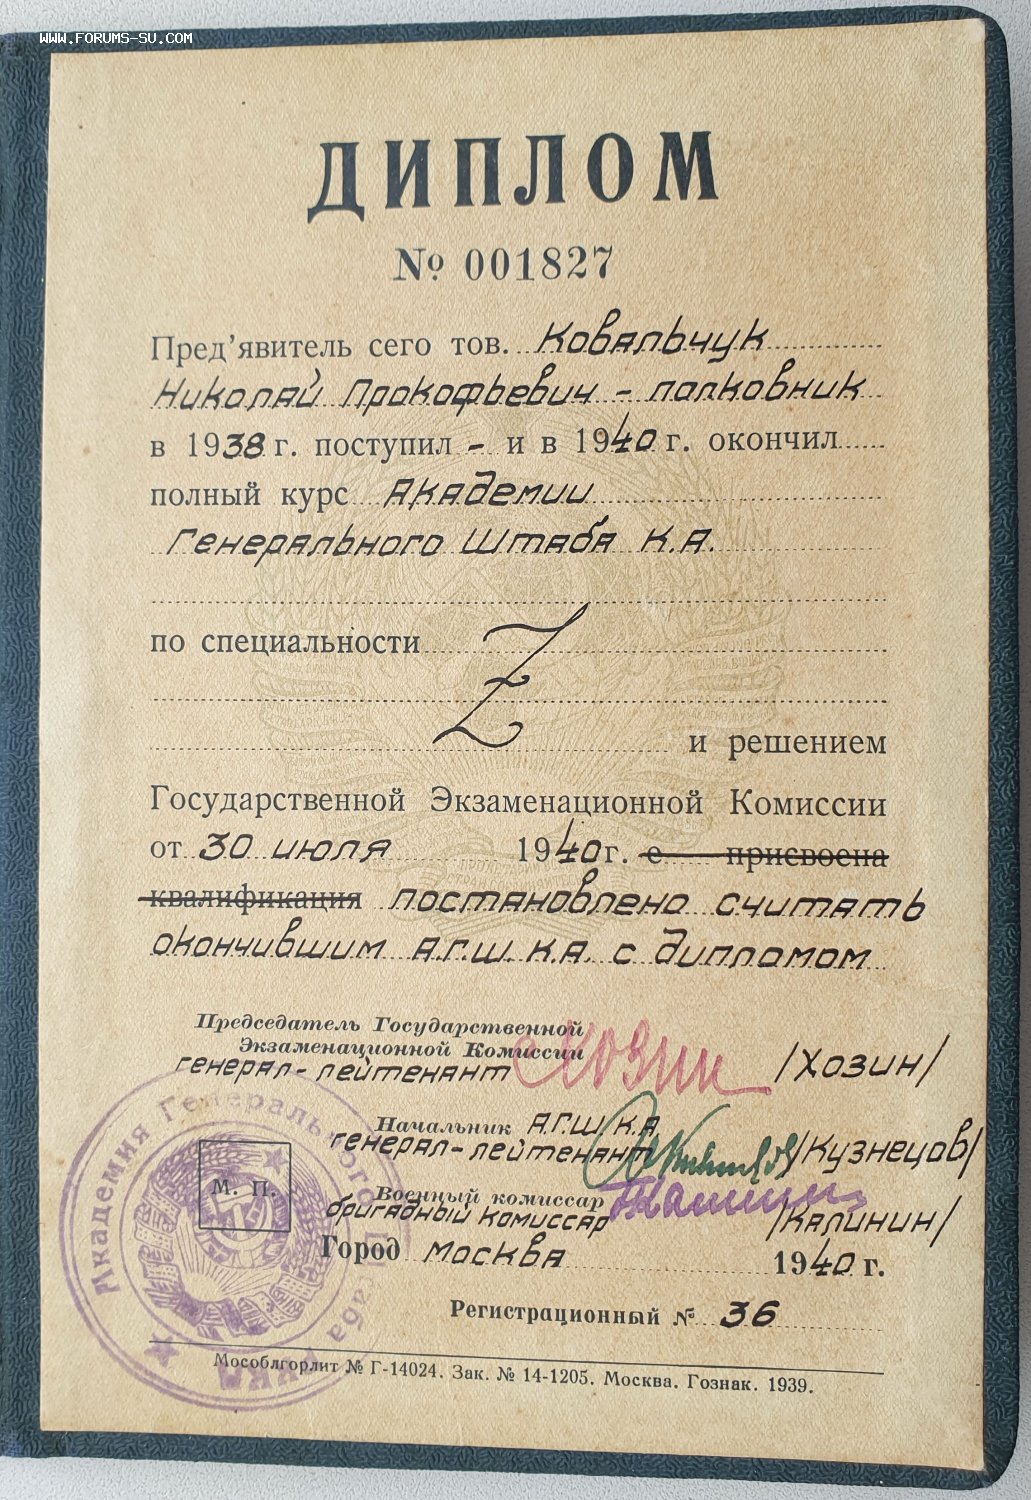 WWW.FORUMS-SU.COM
ДИПЛОМ
№ 001827
Пред'явитель сего тов. Ковальчук
Николай Прокофьевич - полковник
в 1938 г. поступил - и в 1940 г. окончил
полный курс Академии
Генерального Штаба К.А.
по специальности Z
и решением
Государственной Экзаменационной Комиссии
от 30 июля 1940 г. е присвоена
квалификация постановлено считать
окончившим А.Г.Ш. К.А. с дипломом
Председатель Государственной
Экзаменационной Комиссии
генерал-лейтенант Хозин /Хозин/
Начальник А.Г.Ш К.А
генерал-лейтенант /Кузнецов/
Военный комиссар
бригадный комиссар Калинин /Калинин/
М. П.
Академия Генерального Штаба РККА
Город Москва 1940 г.
Регистрационный № 36
Мособлгорлит № Г-14024. Зак. № 14-1205. Москва. Гознак. 1939.